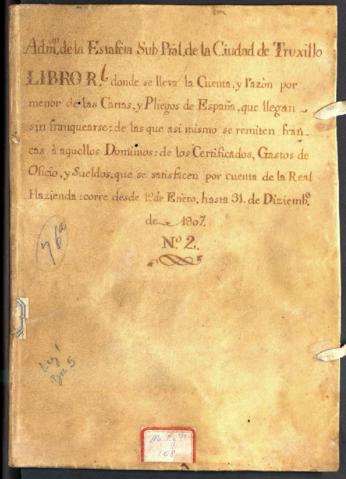 Adm.ⁿ de la Estafeta Sub-Pral. de la Ciudad de Truxillo
LIBRO R.l donde se lleva la Cuenta, y razòn por
menor de las Cartas, y Pliegos de España, que llegan
sin franquearse: de las que asi mismo se remiten fran-
cas à aquellos Dominios: de los Certificados, Gastos de
Oficio, y Sueldos, que se satisfacen por cuenta de la Real
Hazienda: corre desde 1.º de Enero, hasta 31. de Diziemb.e
de 1807.
N.º 2.
Leg.
108